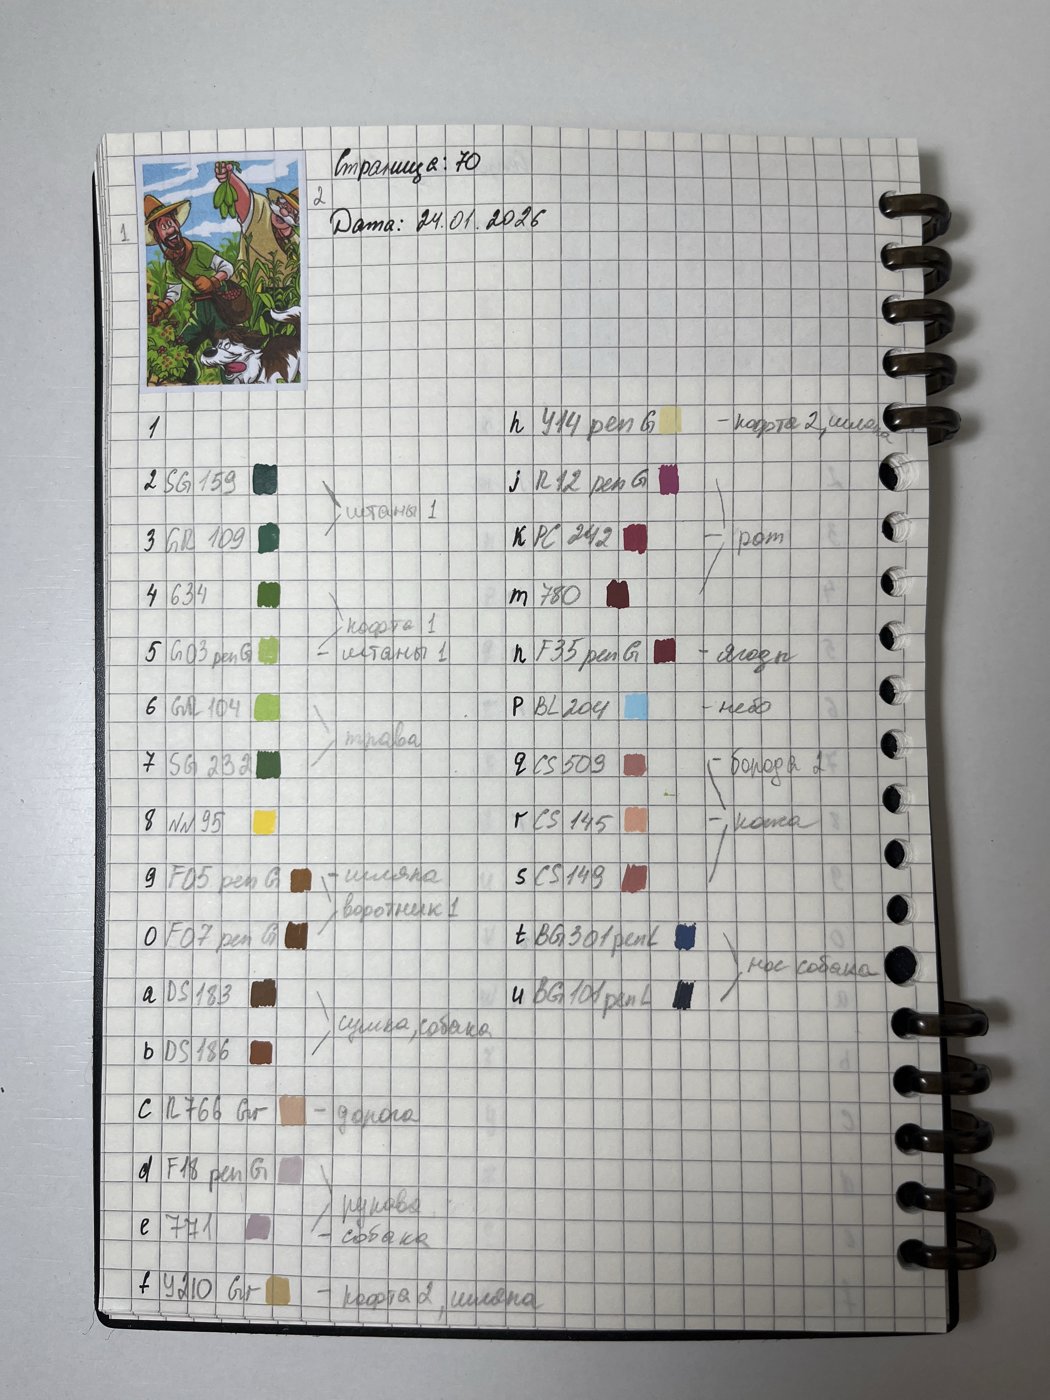 1
2
Страница: 70
Дата: 24.01.2026
1
2 SG 159
3 GR 109
штаны 1
4 634
5 G03 pen G
кофта 1
- штаны 1
6 GR 104
7 SG 232
трава
8 NN 95
9 F05 pen G - шляпа
0 F07 pen G
воротник 1
a DS 183
b DS 186
сумка, собака
c R766 Gr - дорога
d F18 pen G
e 771
рукава
- собака
f Y210 Gr - кофта 2, шляпа
h Y14 pen G - кофта 2, шляпа
j R12 pen G
k PC 242 - рот
m 780
n F35 pen G - ягоды
p BL 204 - небо
q CS 509 - борода 2
r CS 145 - кожа
s CS 149
t BG 301 pen L
u BG 101 pen L
нос собака